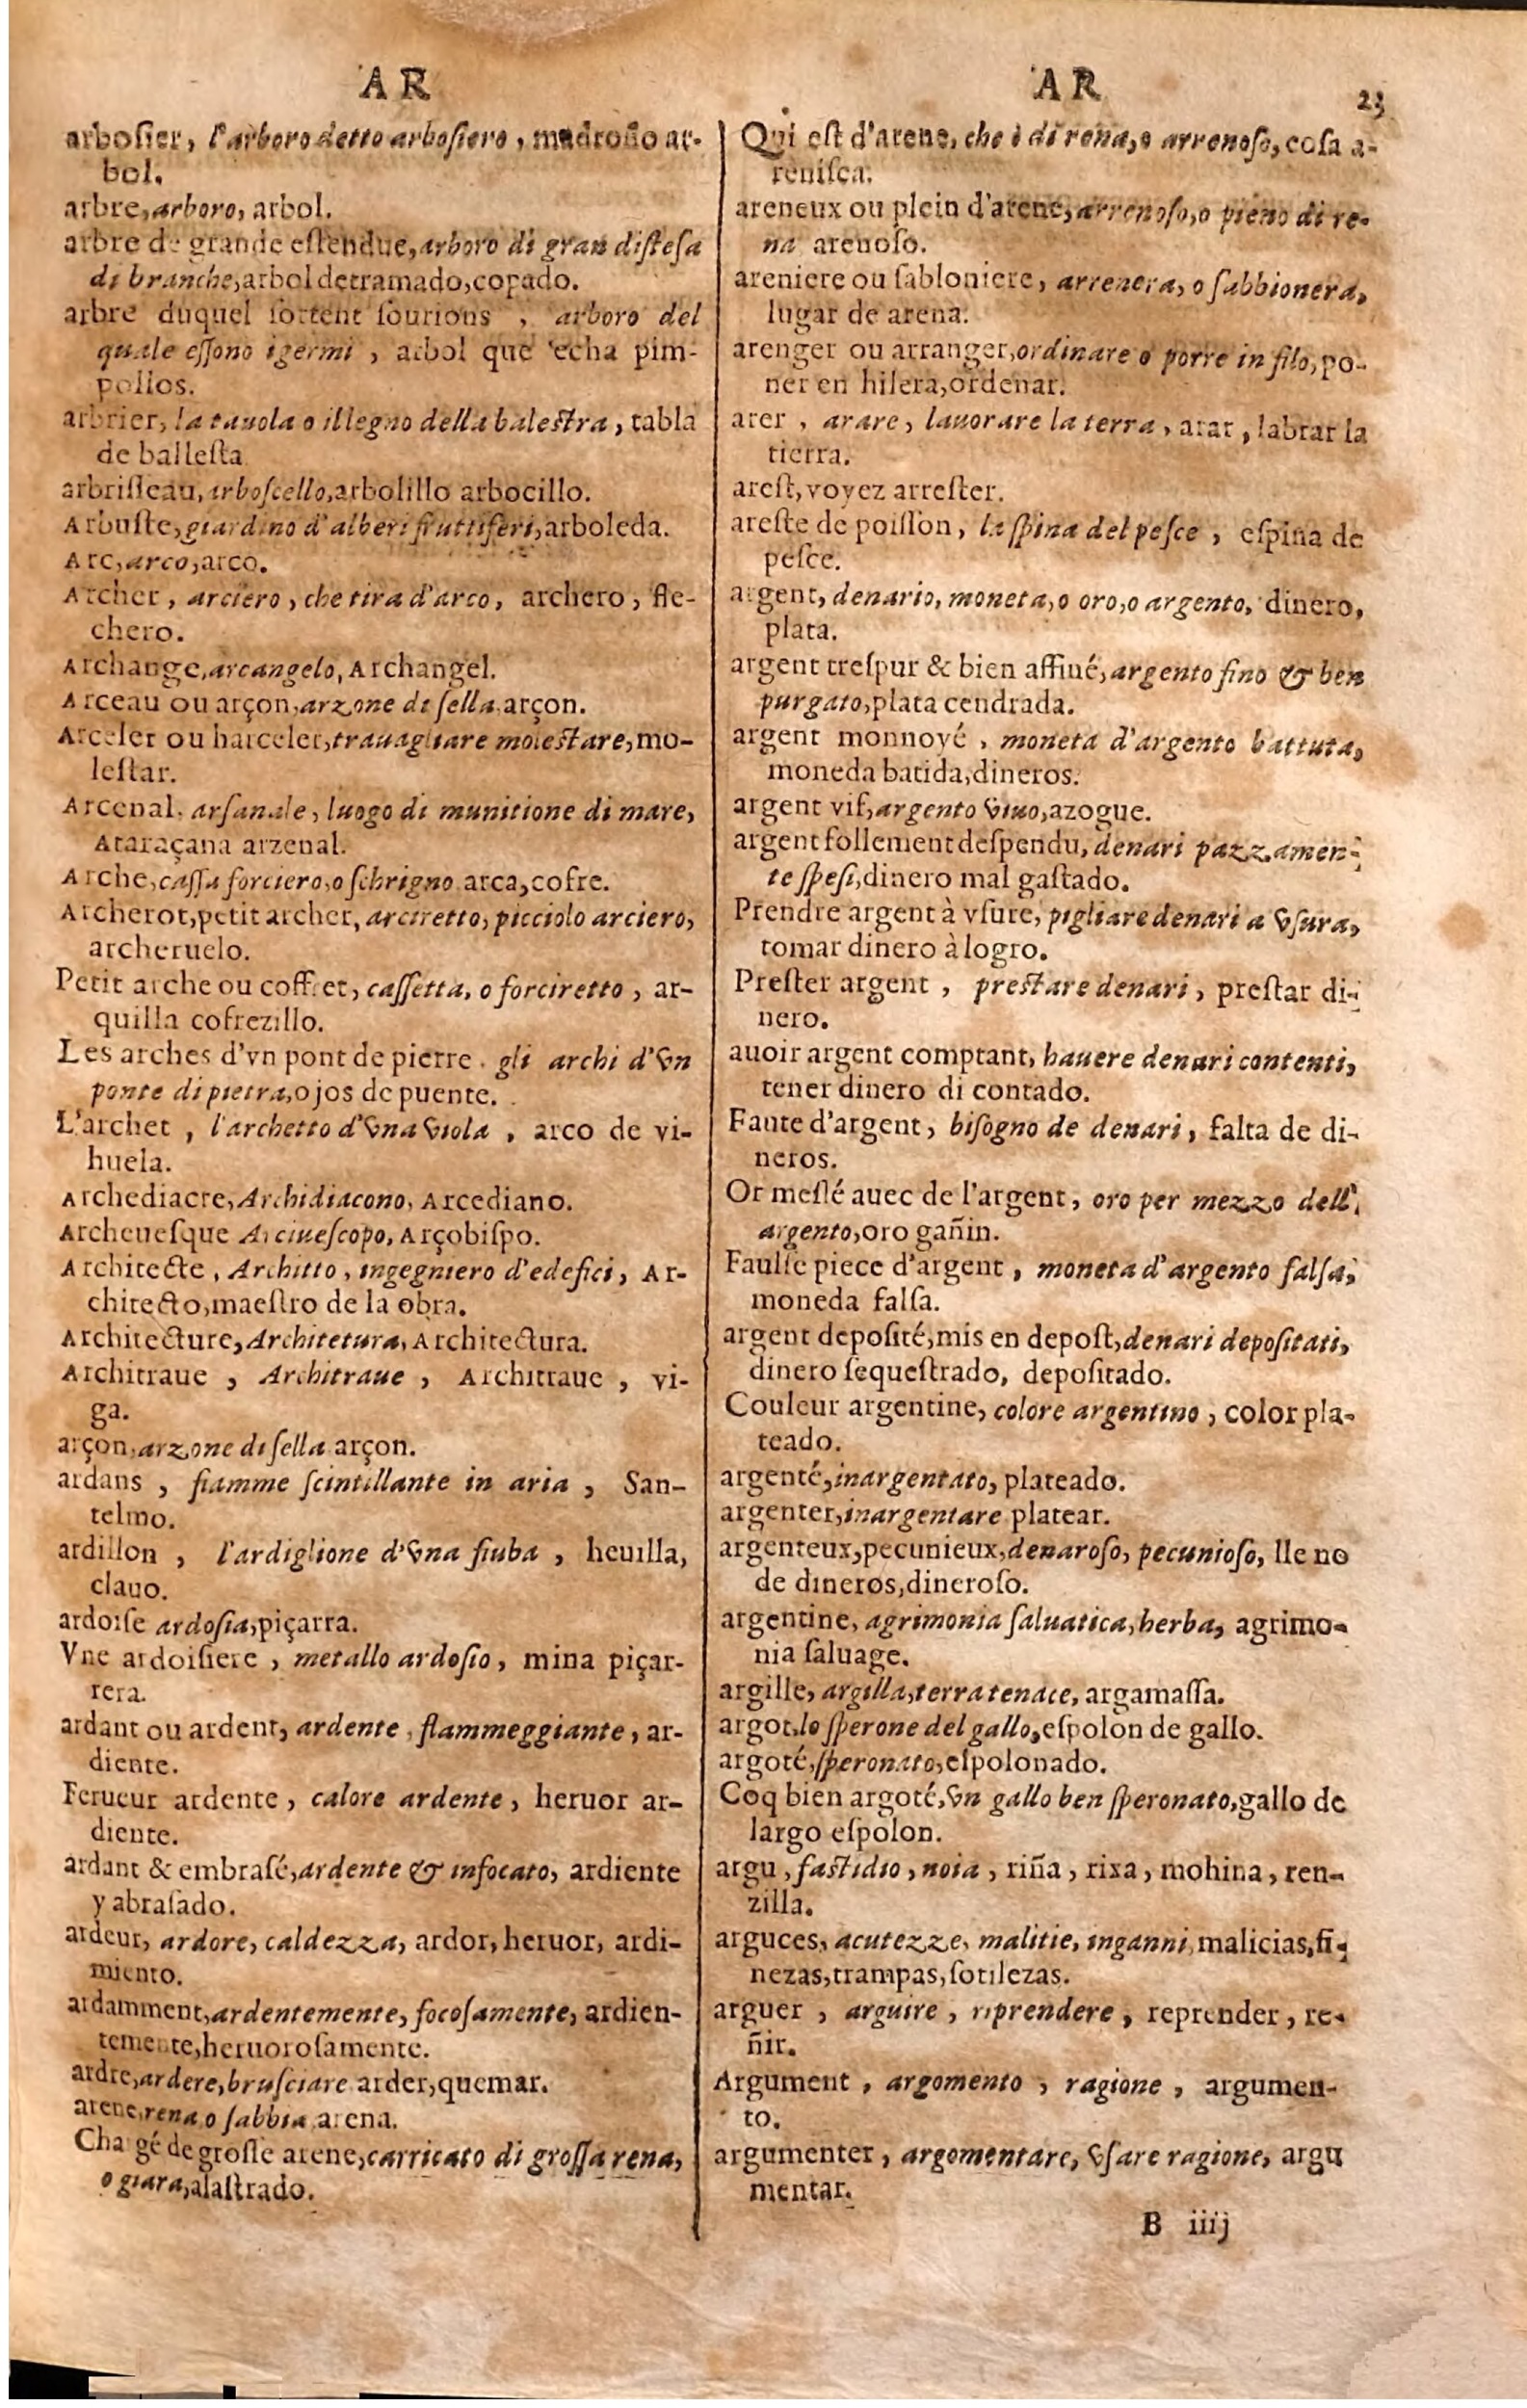 AR
arbosier, l'arboro detto arbosiero, madroño ar-
bol.
arbre, arboro, arbol.
arbre de grande estendue, arboro di gran distesa
di branche, arbol detramado, copado.
arbre duquel sortent sourions, arboro del
quale essono i germi, arbol que echa pim-
pollos.
arbrier, la tauola o il legno della balestra, tabla
de ballesta
arbrisseau, arboscello, arbolillo arbocillo.
Arbuste, giardino d'alberi fruttiferi, arboleda.
Arc, arco, arco.
Archer, arciero, che tira d'arco, archero, fle-
chero.
Archange, arcangelo, Archangel.
Arceau ou arçon, arzone di sella, arçon.
Arceler ou harceler, trauagliare molestare, mo-
lestar.
Arcenal, arsanale, luogo di munitione di mare,
Ataraçana arzenal.
Arche, cassa forciero, o schrigno, arca, cofre.
Archerot, petit archer, arciretto, picciolo arciero,
archeruelo.
Petit arche ou coffret, cassetta, o forciretto, ar-
quilla cofrezillo.
Les arches d'vn pont de pierre. gli archi d'vn
ponte di pietra, ojos de puente.
L'archet, l'archetto d'vna viola, arco de vi-
huela.
Archediacre, Archidiacono, Arcediano.
Archeuesque Arciuescopo, Arçobispo.
Architecte, Architto, ingegniero d'edefici, Ar-
chitecto, maestro de la obra.
Architecture, Architetura, Architectura.
Architraue, Architraue, Architraue, vi-
ga.
arçon, arzone di sella arçon.
ardans, fiamme scintillante in aria, San-
telmo.
ardillon, l'ardiglione d'vna fiuba, heuilla,
clauo.
ardoise ardosia, piçarra.
Vne ardoisiere, metallo ardosio, mina piçar-
rera.
ardant ou ardent, ardente, flammeggiante, ar-
diente.
Ferueur ardente, calore ardente, heruor ar-
diente.
ardant & embrasé, ardente & infocato, ardiente
y abrasado.
ardeur, ardore, caldezza, ardor, heruor, ardi-
miento.
ardamment, ardentemente, focosamente, ardien-
temente, heruorosamente.
ardre, ardere, brusciare arder, quemar.
arene, rena o sabbia arena.
Chargé de grosse arene, carricato di grossa rena,
o giara, alastrado.
AR 23
Qui est d'arene, che è di rena, o arrenoso, cosa a-
renisca.
areneux ou plein d'arene, arrenoso, o pieno di re-
na arenoso.
areniere ou sabloniere, arrenera, o sabbionera,
lugar de arena.
arenger ou arranger, ordinare o porre in filo, po-
ner en hilera, ordenar.
arer, arare, lauorare la terra, arar, labrar la
tierra.
arest, voyez arrester.
areste de poisson, la spina del pesce, espina de
pesce.
argent, denario, moneta, o oro, o argento, dinero,
plata.
argent trespur & bien affiné, argento fino & ben
purgato, plata cendrada.
argent monnoyé, moneta d'argento battuta,
moneda batida, dineros.
argent vif, argento viuo, azogue.
argent follement despendu, denari pazzamen-
te spesi, dinero mal gastado.
Prendre argent à vsure, pigliare denari a vsura,
tomar dinero à logro.
Prester argent, prestare denari, prestar di-
nero.
auoir argent comptant, hauere denari contenti,
tener dinero di contado.
Faute d'argent, bisogno de denari, falta de di-
neros.
Or meslé auec de l'argent, oro per mezzo dell'
argento, oro gañin.
Faulse piece d'argent, moneta d'argento falsa,
moneda falsa.
argent deposité, mis en depost, denari depositati,
dinero sequestrado, depositado.
Couleur argentine, colore argentino, color pla-
teado.
argenté, inargentato, plateado.
argenter, inargentare platear.
argenteux, pecunieux, denaroso, pecunioso, lle no
de dineros, dineroso.
argentine, agrimonia saluatica, herba, agrimo-
nia saluage.
argille, argilla, terra tenace, argamassa.
argot, lo sperone del gallo, espolon de gallo.
argoté, speronato, espolonado.
Coq bien argoté, vn gallo ben speronato, gallo de
largo espolon.
argu, fastidio, noia, riña, rixa, mohina, ren-
zilla.
arguces, acutezze, malitie, inganni, malicias, fi-
nezas, trampas, sotilezas.
arguer, arguire, riprendere, reprender, re-
ñir.
Argument, argomento, ragione, argumen-
to.
argumenter, argomentare, vsare ragione, argu
mentar.
B iiij